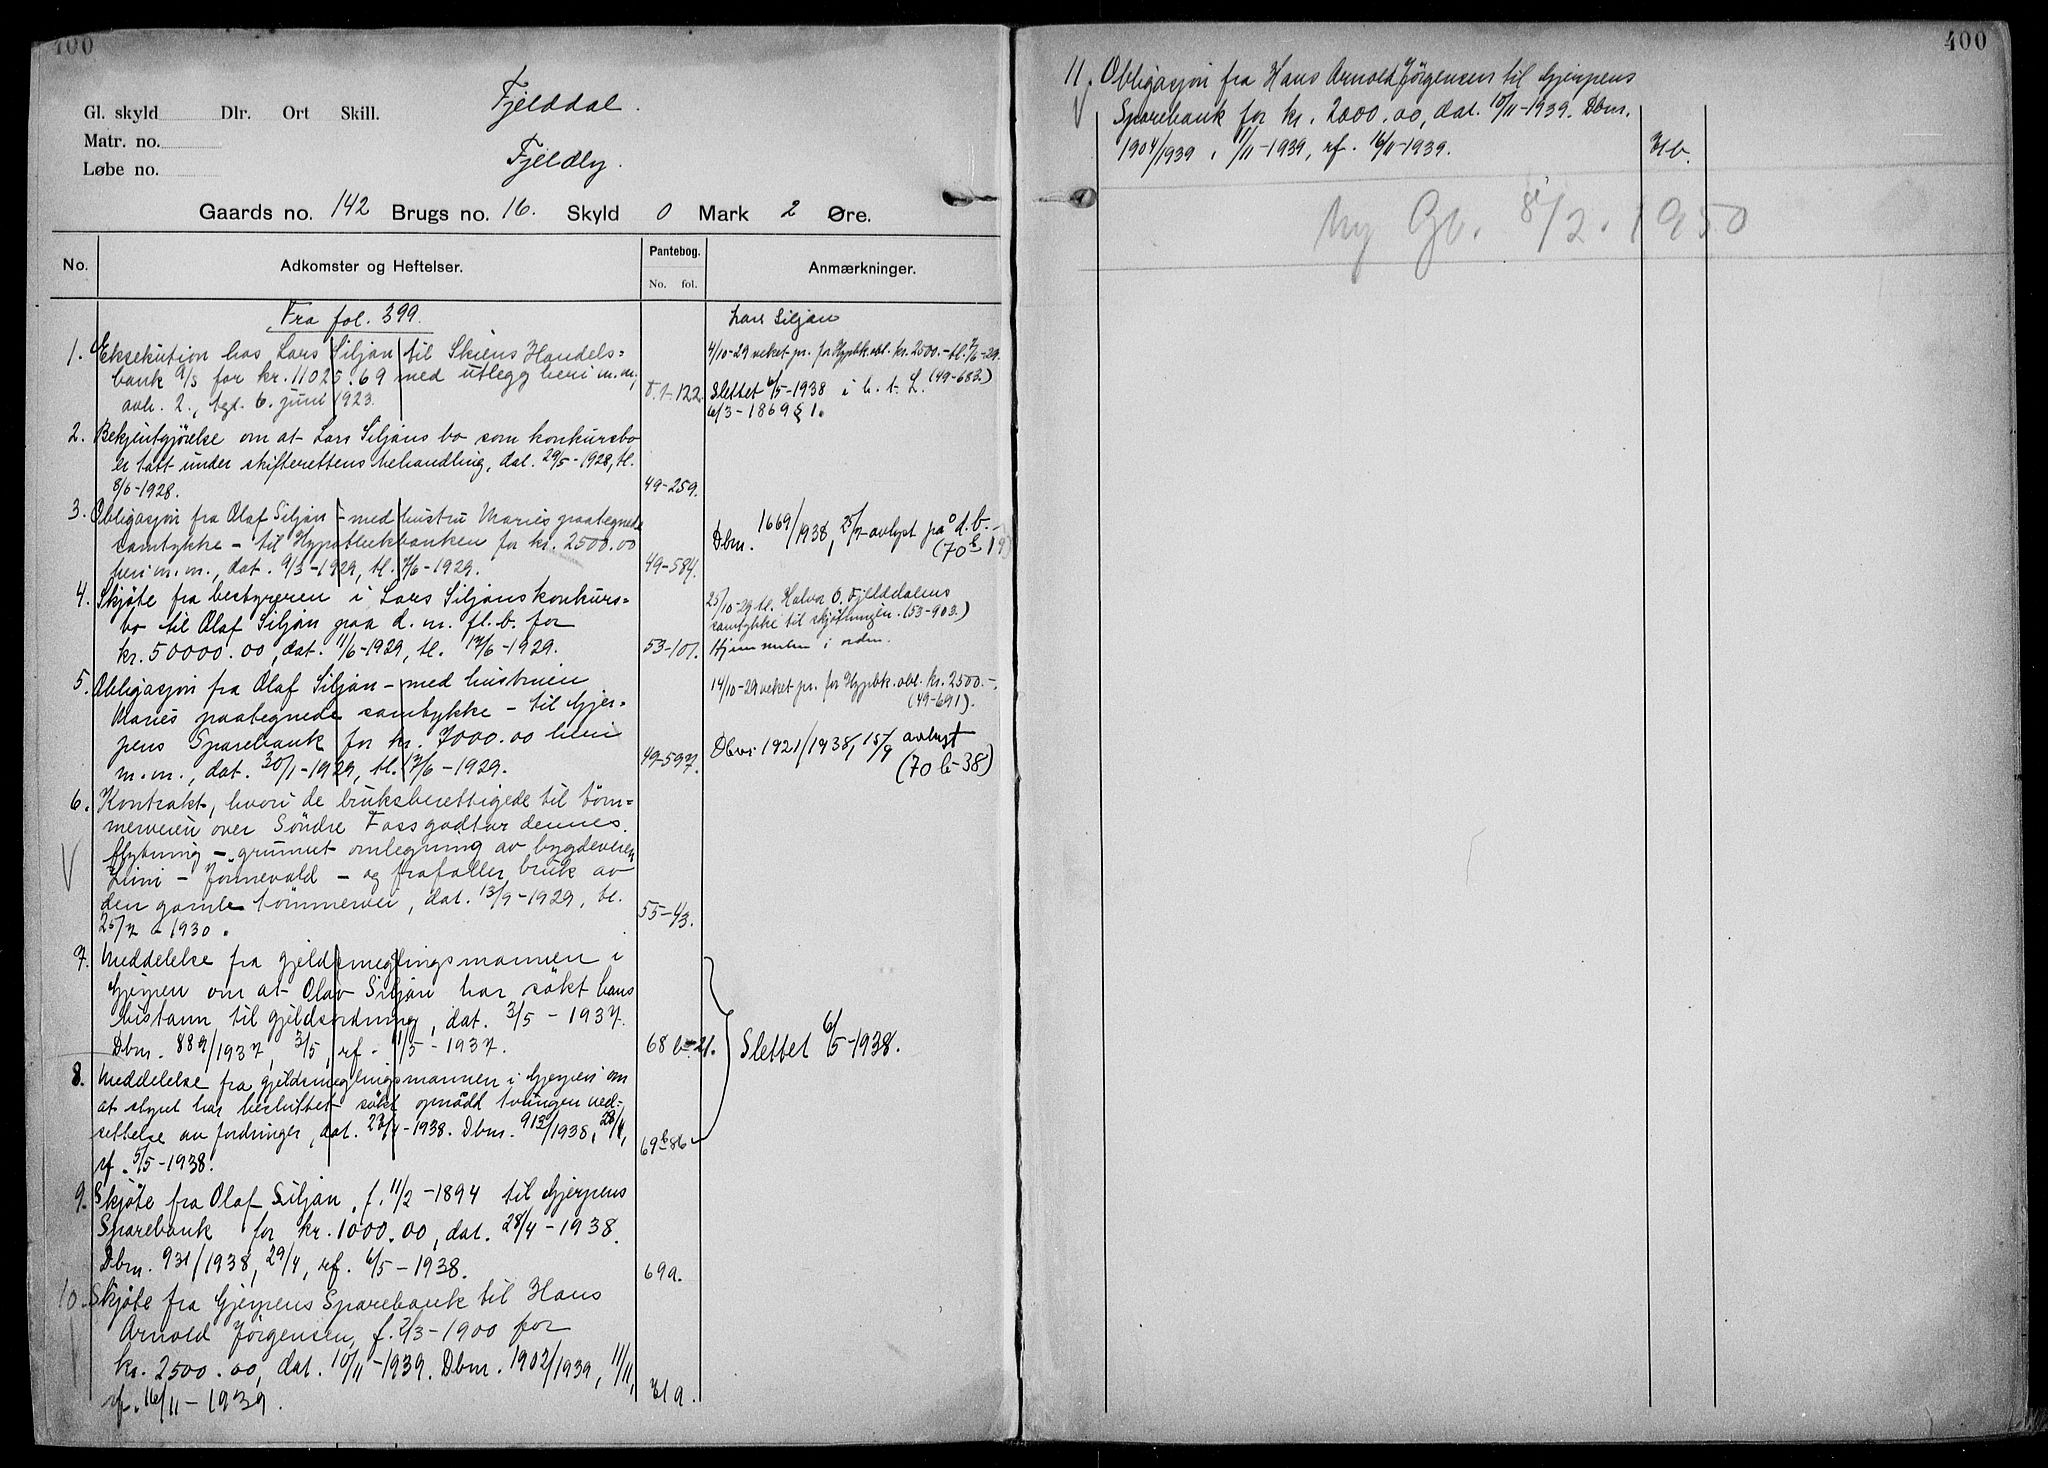 400
Gl. skyld Dlr. Ort Skill.
Matr. no.
Løbe no.
Fjelddal.
Fjeldly.
Gaards no. 142 Brugs no. 16. Skyld 0 Mark 2 Øre.
No. Adkomster og Heftelser. Pantebog. No. fol. Anmærkninger.
Fra fol. 399.
1. Eksekution hos Lars Siljan til Skiens Handels=
bank a/s for kr. 11025.69 med utlegg heri m.m.,
avh. 2., tgl. 6. juni 1923.
Lars Siljan
4/10-29 veket pr. for Hypbk. obl. kr. 2500.- tl. 7/6-29.
(49-683.)
Slettet 6/5-1938 i h. t. L.
6/3-1869 § 1.
2. Bekjentgjørelse om at Lars Siljans bo som konkursbo
er tatt under skifterettens behandling, dat. 29/5-1928, tl.
8/6-1928.
49-259.
3. Obligasjon fra Olaf Siljan - med hustru Maries paategnede
samtykke - til Hypotekbanken for kr. 2500.00
heri m.m., dat. 9/3-1929, tl. 7/6-1929.
49-584.
Dbm. 1669/1938, 25/7 avlyst på d. b. -
4. Skjøte fra bestyreren i Lars Siljans konkurs=
bo til Olaf Siljan paa d. m. fl. b. for
kr. 50000.00, dat. 11/6-1929, tl. 12/6-1929.
53-101.
25/10-29 tl. Halvor O. Fjelddalens
samtykke til skjøtningen. (53-903.)
Hjemmelen i orden.
5. Obligasjon fra Olaf Siljan - med hustruen
Maries paategnede samtykke - til Gjer=
pens Sparebank for kr. 7000.00 heri
m.m., dat. 30/1-1929, tl. 12/6-1929.
49-597.
14/10-29 veket pr. for Hypbk. obl. kr. 2500.-.
(49-691).
Dbm. 1921/1938, 15/9 avlyst
(70 b-38)
6. Kontrakt, hvori de bruksberettigede til töm=
merveien over Söndre Foss godtar dennes
flytning - grunnet omlegning av bygdeveien
- og frafaller bruk av
den gamle tömmervei, dat. 13/9-1929, tl.
25/7 - 1930.
55-43.
7. Meddelelse fra gjeldsmeglingsmannen i
Gjerpen om at Olav Siljan har søkt hans
bistann til gjeldsordning, dat. 3/5 - 1937.
Dbm. 889/1937, 3/5, rf. 11/5 - 1937.
68 b-21.
Slettet 6/5-1938.
8. Meddelelse fra gjeldsmeglingsmannen i Gjerpen om
at styret har besluttet søkt opnådd tvungen ned=
settelse av fordringer, dat. 23/4-1938. Dbm. 913/1938, 28/4,
rf. 5/5-1938.
69 b 86
9. Skjøte fra Olaf Siljan, f. 11/2-1894 til Gjerpens
Sparebank for kr. 1000.00, dat. 28/4-1938.
Dbm. 931/1938, 29/4, rf. 6/5-1938.
69a.
10. Skjøte fra Gjerpens Sparebank til Hans
Arnold Jørgensen, f. 2/3-1900 for
kr. 2500.00, dat. 10/11-1939. Dbm. 1902/1939, 11/11,
rf. 16/11-1939.
71a.
400
11. Obligasjon fra Hans Arnold Jørgensen til Gjerpens
Sparebank for kr. 2000.00, dat. 10/11-1939. Dbm.
1904/1939, 11/11-1939, rf. 16/11-1939.
71b.
Ny Gb. 8/2. 1950